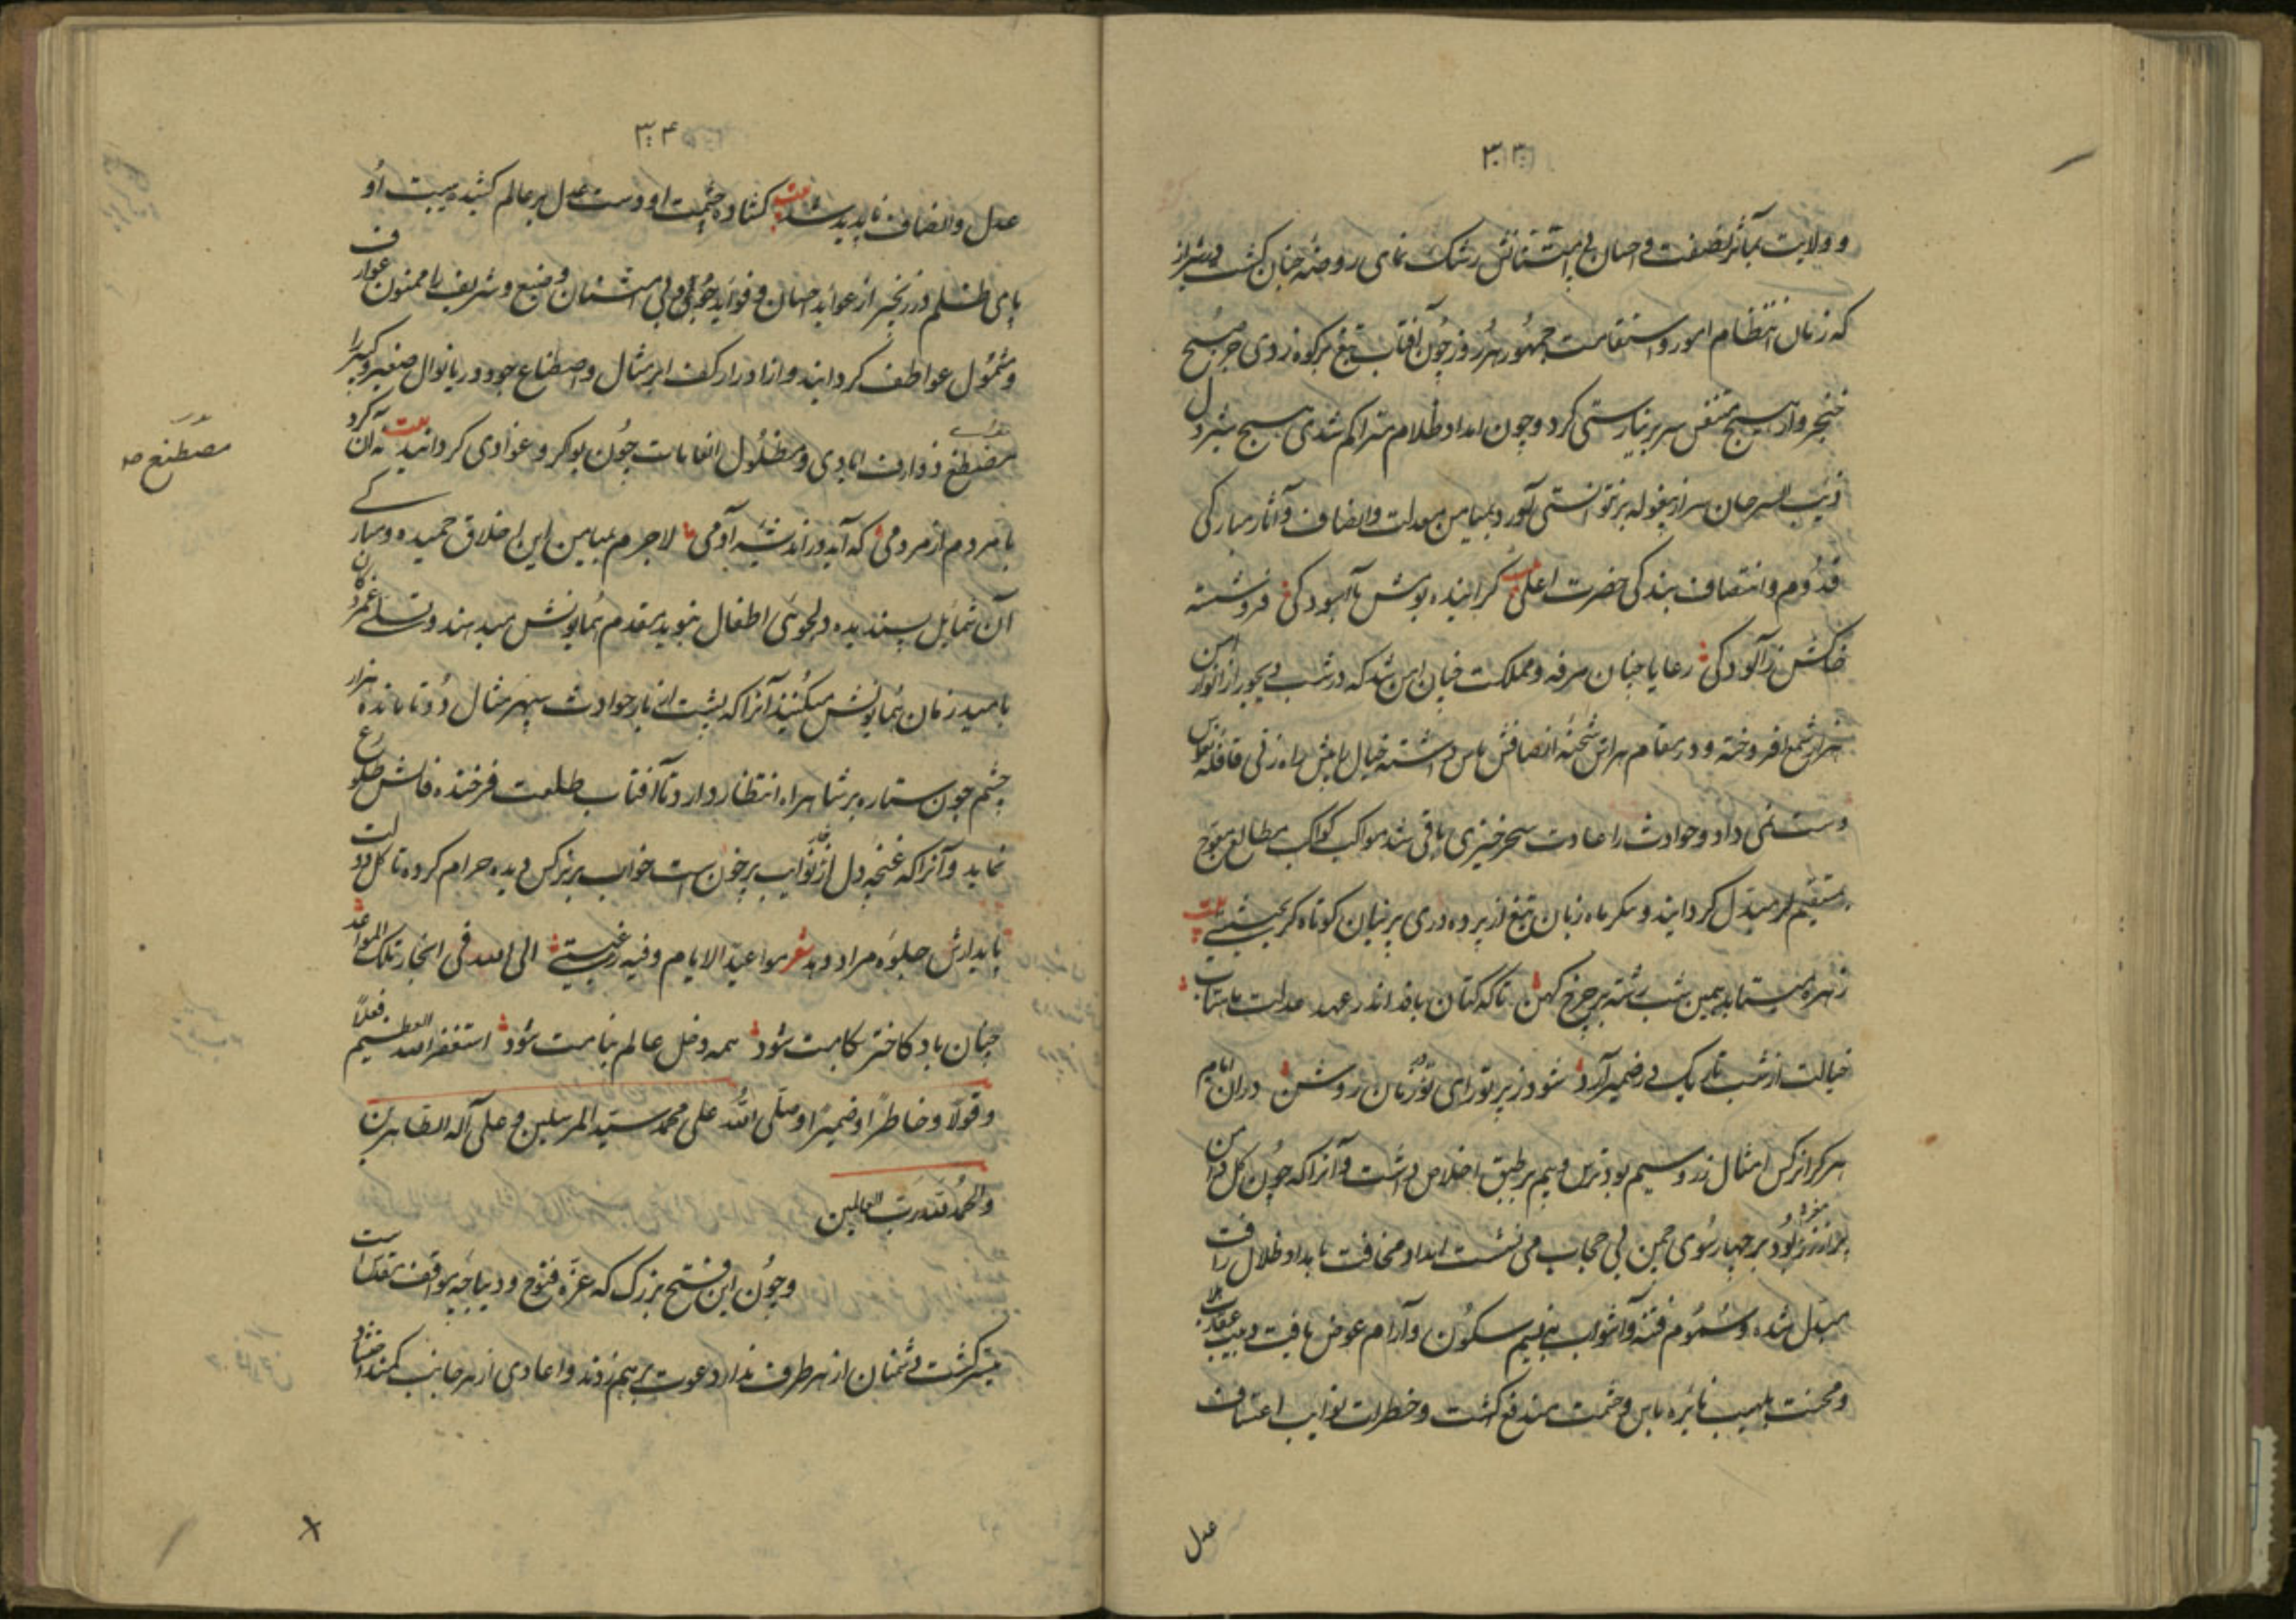 ۳۰۳
و ولایت بمآثر نصفت و احسان بی امتنانش رشک نمای روضه جنان کشت در شیراز
که زمان انتظام امور و استقامت جمهور هر روز چون آفتاب تیغ برکوه زدی جرم صبح
خنجر وار هیچ متنفس سر بر نیارستی کرد و چون امداد ظلام متراکم شدی هیچ شیردل
ذنب السرحان سر از بیغوله بر نتوانستی آورد بمیامن معدلت و انصاف و آثار مبارکی
قدوم و انتصاف بندکی حضرت اعلی کراینده بومش بآسودکی فروشسته
خاکش ز آلودکی رعایا چنان مرفه و مملکت چنان ایمن شد که در شب دیجور از انوار امن
هزار شمع افروخته و در مقام هراس شحنه انصافش پاس داشته خیال راه زنی قافله حواس
دست نمی داد و حوادث را عادت سحرخیزی باقی نشد مواکب کواکب مطالع معوج
بمستقیم مبدل کردانید و پیکر ماه زبان تیغ از پرده دری پرنیان کوتاه کرد بیت
زهره میتابد بیمن شب رشته بر چرخ کهن تا که کتان بافد اندر عهد عدلت ماهتاب
خیالت از شب تاریک در ضمیر آرد شود ز پرتو رای تو در زمان روشن در ان ایام
هر کرا نرکس امثال زر و سیم بود ترس و بیم بر طبق اخلاص داشت و آنرا که چون کل دامن
پر از زر بود بر چهار سوی چمن بی حجاب می نشست امداد مخافت بامداد ظلال رافت
مبدل شده و سموم فتنه و آشوب بنسیم سکون و آرام عوض یافت
و محنت بلهیب نایره باس و حشمت مندفع کشت و خطرات نوایب اعتساف
عدل
۳۰۴
عدل و انصاف ناپدید شد بیت کشاده چشمت او دست عدل بر عالم کشیده هیبت او
پای ظلم در زنجیر از عواید احسان و فواید جود بی امتنان وضیع و شریف را ممنون عوارف
و مشمول عواطف کردانید و از ادرار کف ابر مثال و اصطناع جود دریا نوال صغیر و کبیر را
مصطنع ذوارف ایادی و مظلول انعامات چون بواکر و غوادی کردانید بیت نه آن کرد
با مردم از مردمی که آید در اندیشه آدمی لاجرم بمیامن این اخلاق حمیده و مبارکی
آن شمایل پسندیده دلجوئی اطفال بنوید مقدم همایونش میدهند و تسلی غمزدکان
بامید زمان همایونش میکنند آنرا که پشت از بار حوادث سپهر مثال دوتا مانده هزار
چشم چون ستاره بر شاهراه انتظار دارد تا آفتاب طلعت فرخنده فالش طلوع
نماید و آنرا که غنچه دل از خار نوایب پر خون است خواب بر نرکس دیده حرام کرده تا کل دولت
پایدارش جلوه مراد دهد شعر مواعید الایام وفیه رغبتی الی الله فی انجاز تلک المواعد
چنان باد کاختر بکامت شود همه دخل عالم بنامت شود استغفر الله العظیم فعلاً
و قولاً و خاطراً و ضمیراً و صلّی الله علی محمد سید المرسلین و علی آله الطاهرین
والحمد لله رب العالمین
و چون این فتح بزرک که غره فتوح و دیباجه مواقف تقدیر است
میسر کشت دشمنان از هر طرف ندار دعوت بر هم زدند و اعادی از هر جانب کمند احتشاد
مصطنع صح